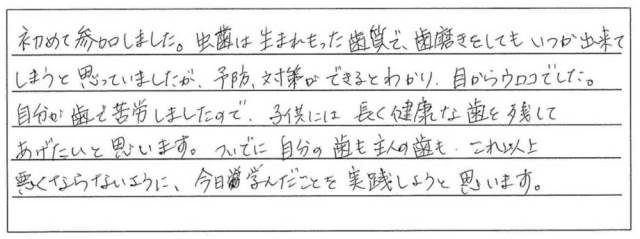 初めて参加しました。虫歯は生まれもった歯質で、歯磨きをしてもいつか出来て
しまうと思っていましたが、予防、対策ができるとわかり、目からウロコでした。
自分が歯で苦労しましたので、子供には長く健康な歯を残して
あげたいと思います。ついでに自分の歯も主人の歯も、これ以上
悪くならないように、今日学んだことを実践しようと思います。